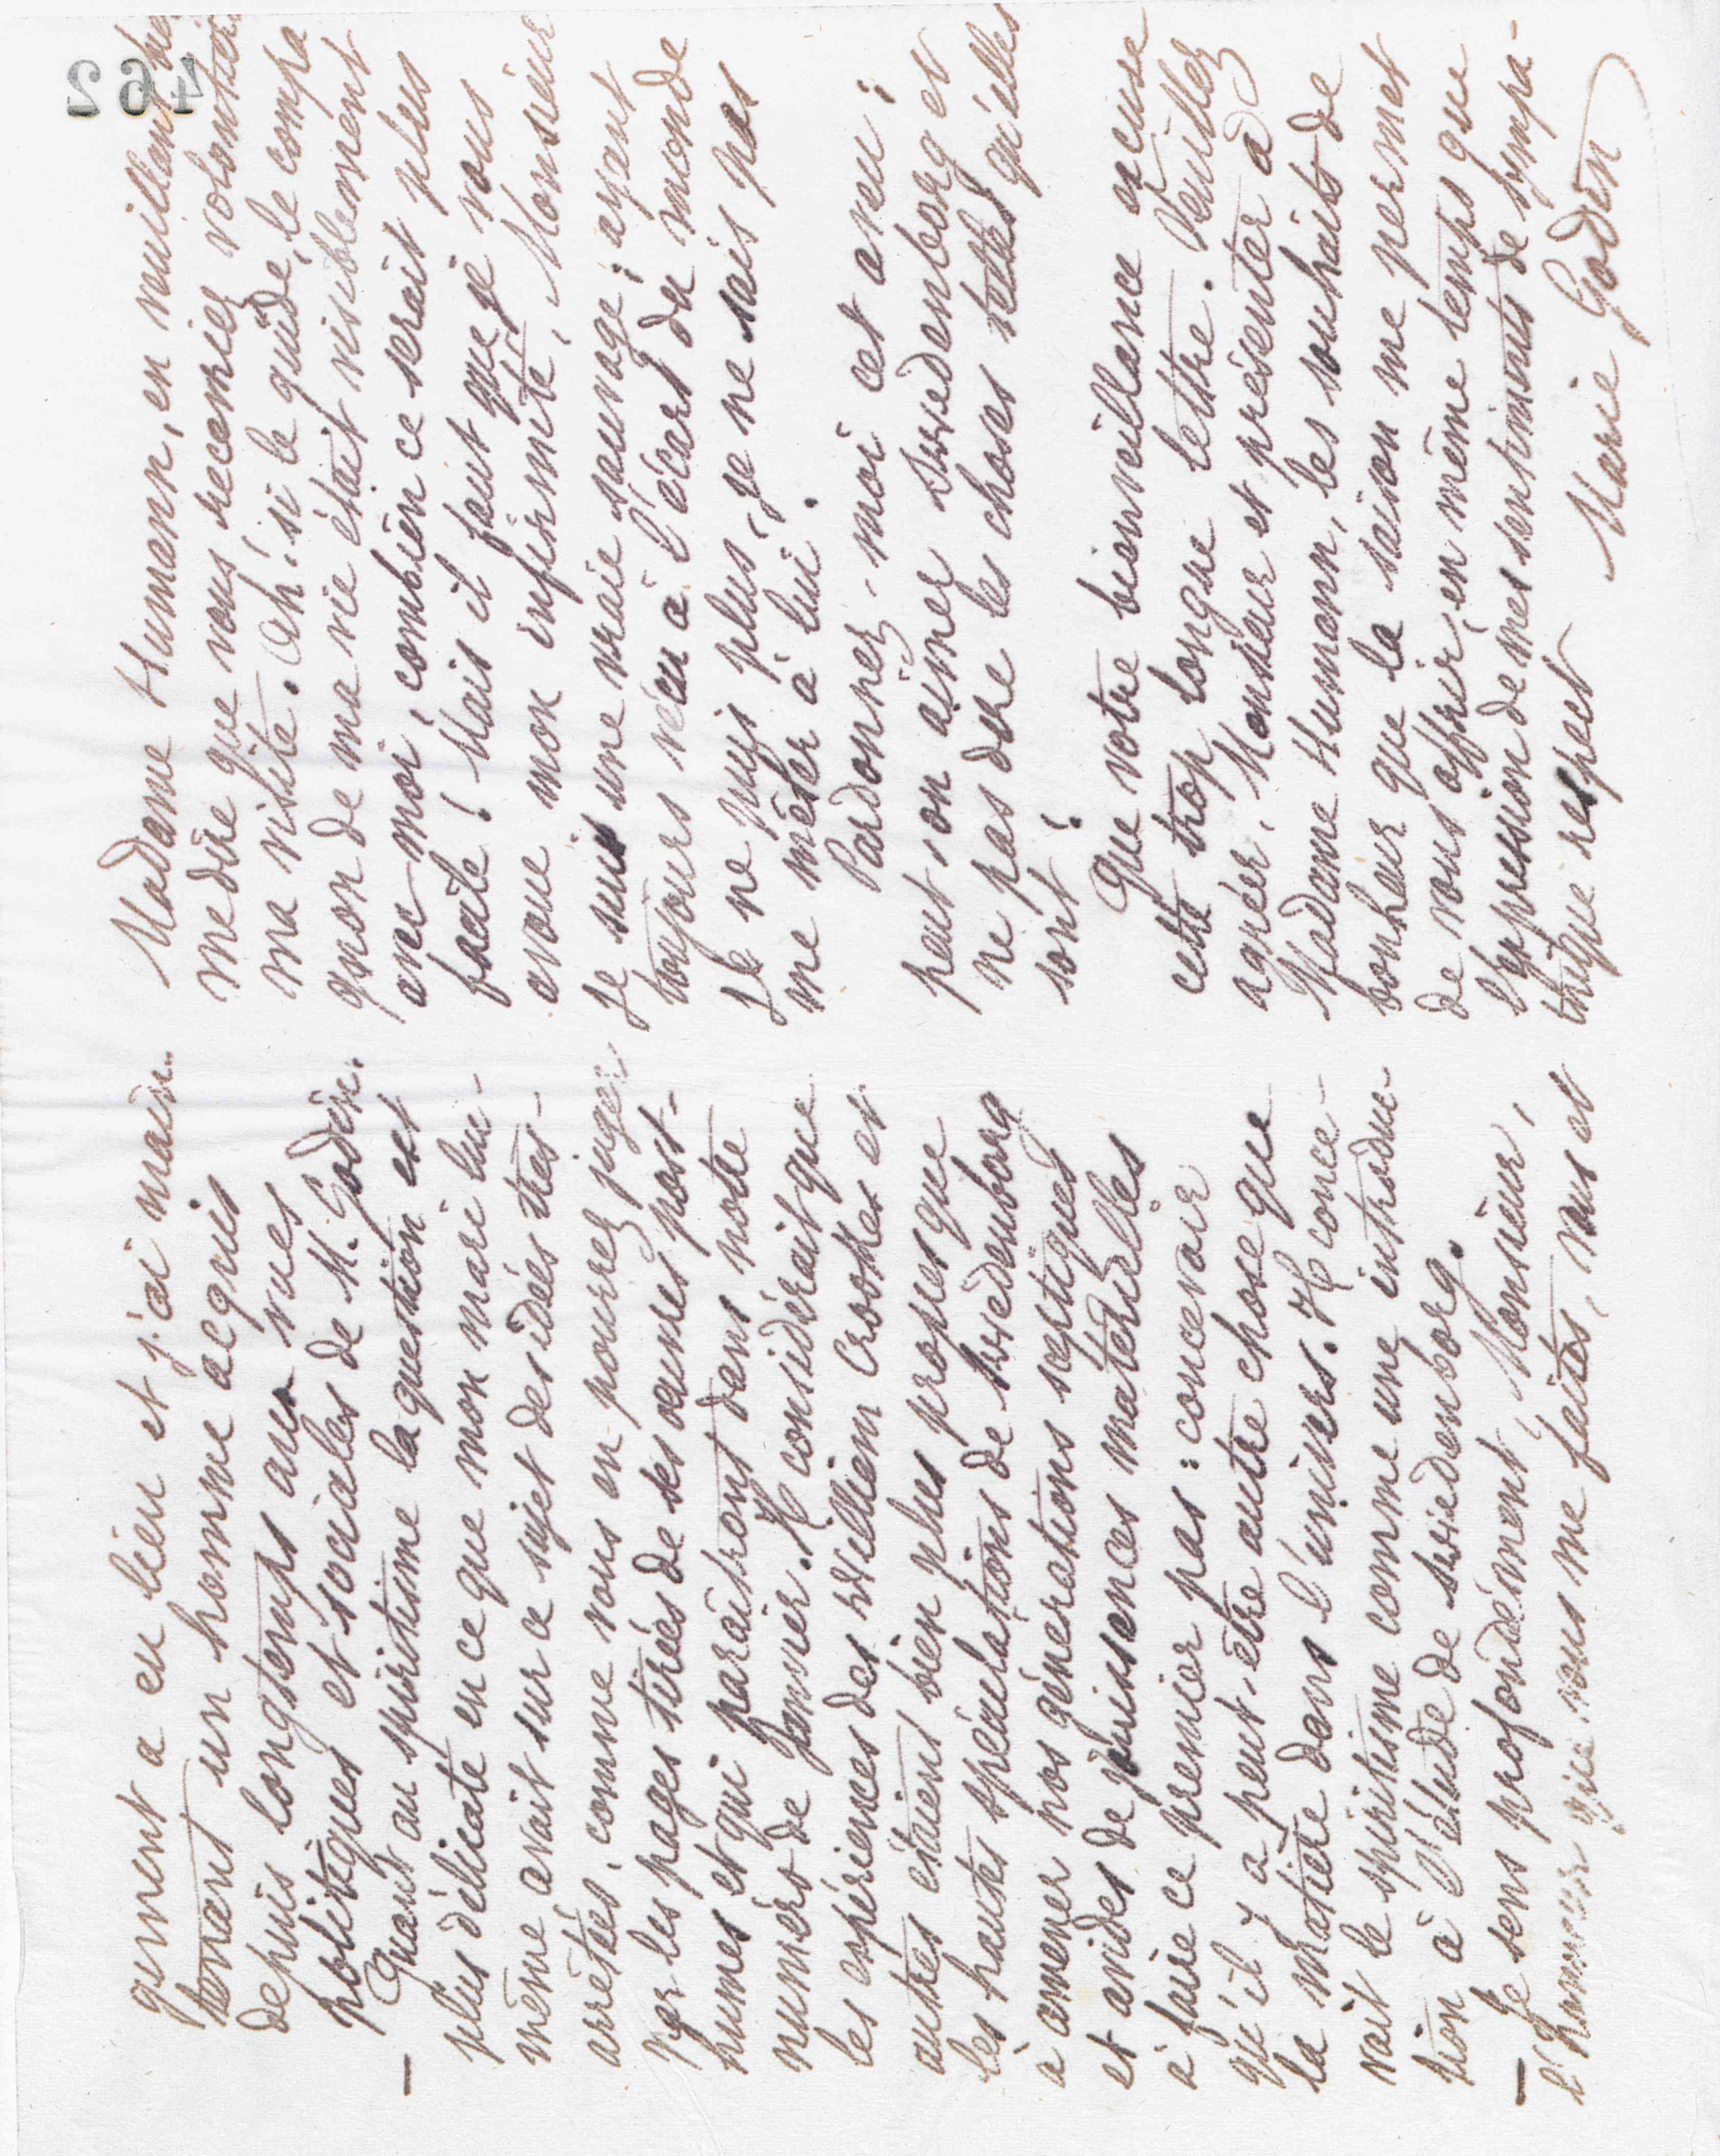 gement a eu lieu et j'ai main-
tenant un homme acquis
depuis longtemps aux vues
politiques et sociales de M. Godin.
— Quant au spiritisme la question est
plus délicate en ce que mon mari lui-
même avait sur ce sujet des idées très-
arrêtées, comme vous en pourrez juger
par les pages tirées de ses œuvres post-
humes et qui paraîtront dans notre
numéro de Janvier. Il considérait que
les expériences des William Crookes et
autres étaient bien plus propres que
les hautes spéculations de Swedenborg
à amener nos générations sceptiques
et avides de jouissances matérielles
à faire ce premier pas : concevoir
qu'il y a peut-être autre chose que
la matière dans l'univers. Il conce-
vait le spiritisme comme une introduc
tion à l'étude de Swedenborg.
— Je sens profondément, Monsieur,
l'honneur que vous me faites, vous et
Madame Humann, en voulant bien
me dire que vous recevriez volontiers
ma visite. Ah! si le guide, le compa
gnon de ma vie était visiblement
avec moi, combien ce serait plus
facile ! Mais il faut que je vous
avoue mon infirmité, Monsieur
je suis une vraie sauvage ; ayant
toujours vécu à l'écart du monde
je ne puis plus, je ne sais pas
me mêler à lui.
Pardonnez-moi cet aveu ;
peut-on aimer Swedenborg et
ne pas dire les choses telles qu'elles
sont ?
Que votre bienveillance excuse
cette trop longue lettre. Veuillez
agréer, Monsieur et présenter à
Madame Humann, les souhaits de
bonheur que la saison me permet
de vous offrir, en même temps que
l'expression de mes sentiments de sympa-
thique respect
Marie Godin
462